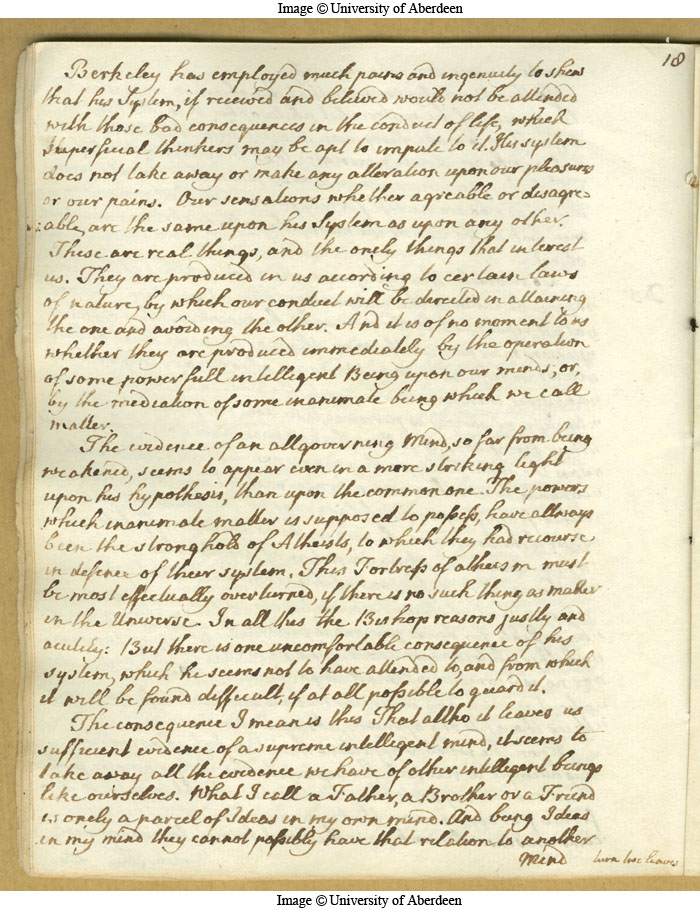 Image © University of Aberdeen
18
Berkeley has employed much pains and ingenuity to shew
that his System, if received and believed would not be attended
with those bad consequences in the conduct of life, which
Superficial thinkers may be apt to impute to it. His system
does not take away or make any alteration upon our pleasures
or our pains. Our sensations whether agreable or disagre=
:able, are the same upon his System as upon any other.
These are real things, and the onely things that interest
us. They are produced in us according to certain laws
of nature, by which our conduct will be directed in attaining
the one and avoiding the other. And it is of no moment to us
whether they are produced immediately by the operation
of some powerfull intelligent Being upon our minds, or,
by the mediation of some inanimate being which we call
matter.
The evidence of an allgoverning Mind, so far from being
weakened, seems to appear even in a more striking light
upon his hypothesis, than upon the common one. The powers
which inanimate matter is supposed to possess, have allways
been the stronghold of Atheists, to which they had recourse
in defence of their system. This Fortress of atheism must
be most effectually overturned, if there is no such thing as matter
in the Universe. In all this the Bishop reasons justly and
acutely: But there is one uncomfortable consequence of his
system, which he seems not to have attended to, and from which
it will be found difficult, if at all possible to guard it.
The consequence I mean is this That altho it leaves us
sufficient evidence of a supreme intelligent mind, it seems to
take away all the evidence we have of other intelligent beings
like ourselves. What I call a Father, a Brother or a Friend
is onely a parcel of Ideas in my own mind. And being Ideas
in my mind they cannot possibly have that relation to another
Mind turn two leaves
Image © University of Aberdeen